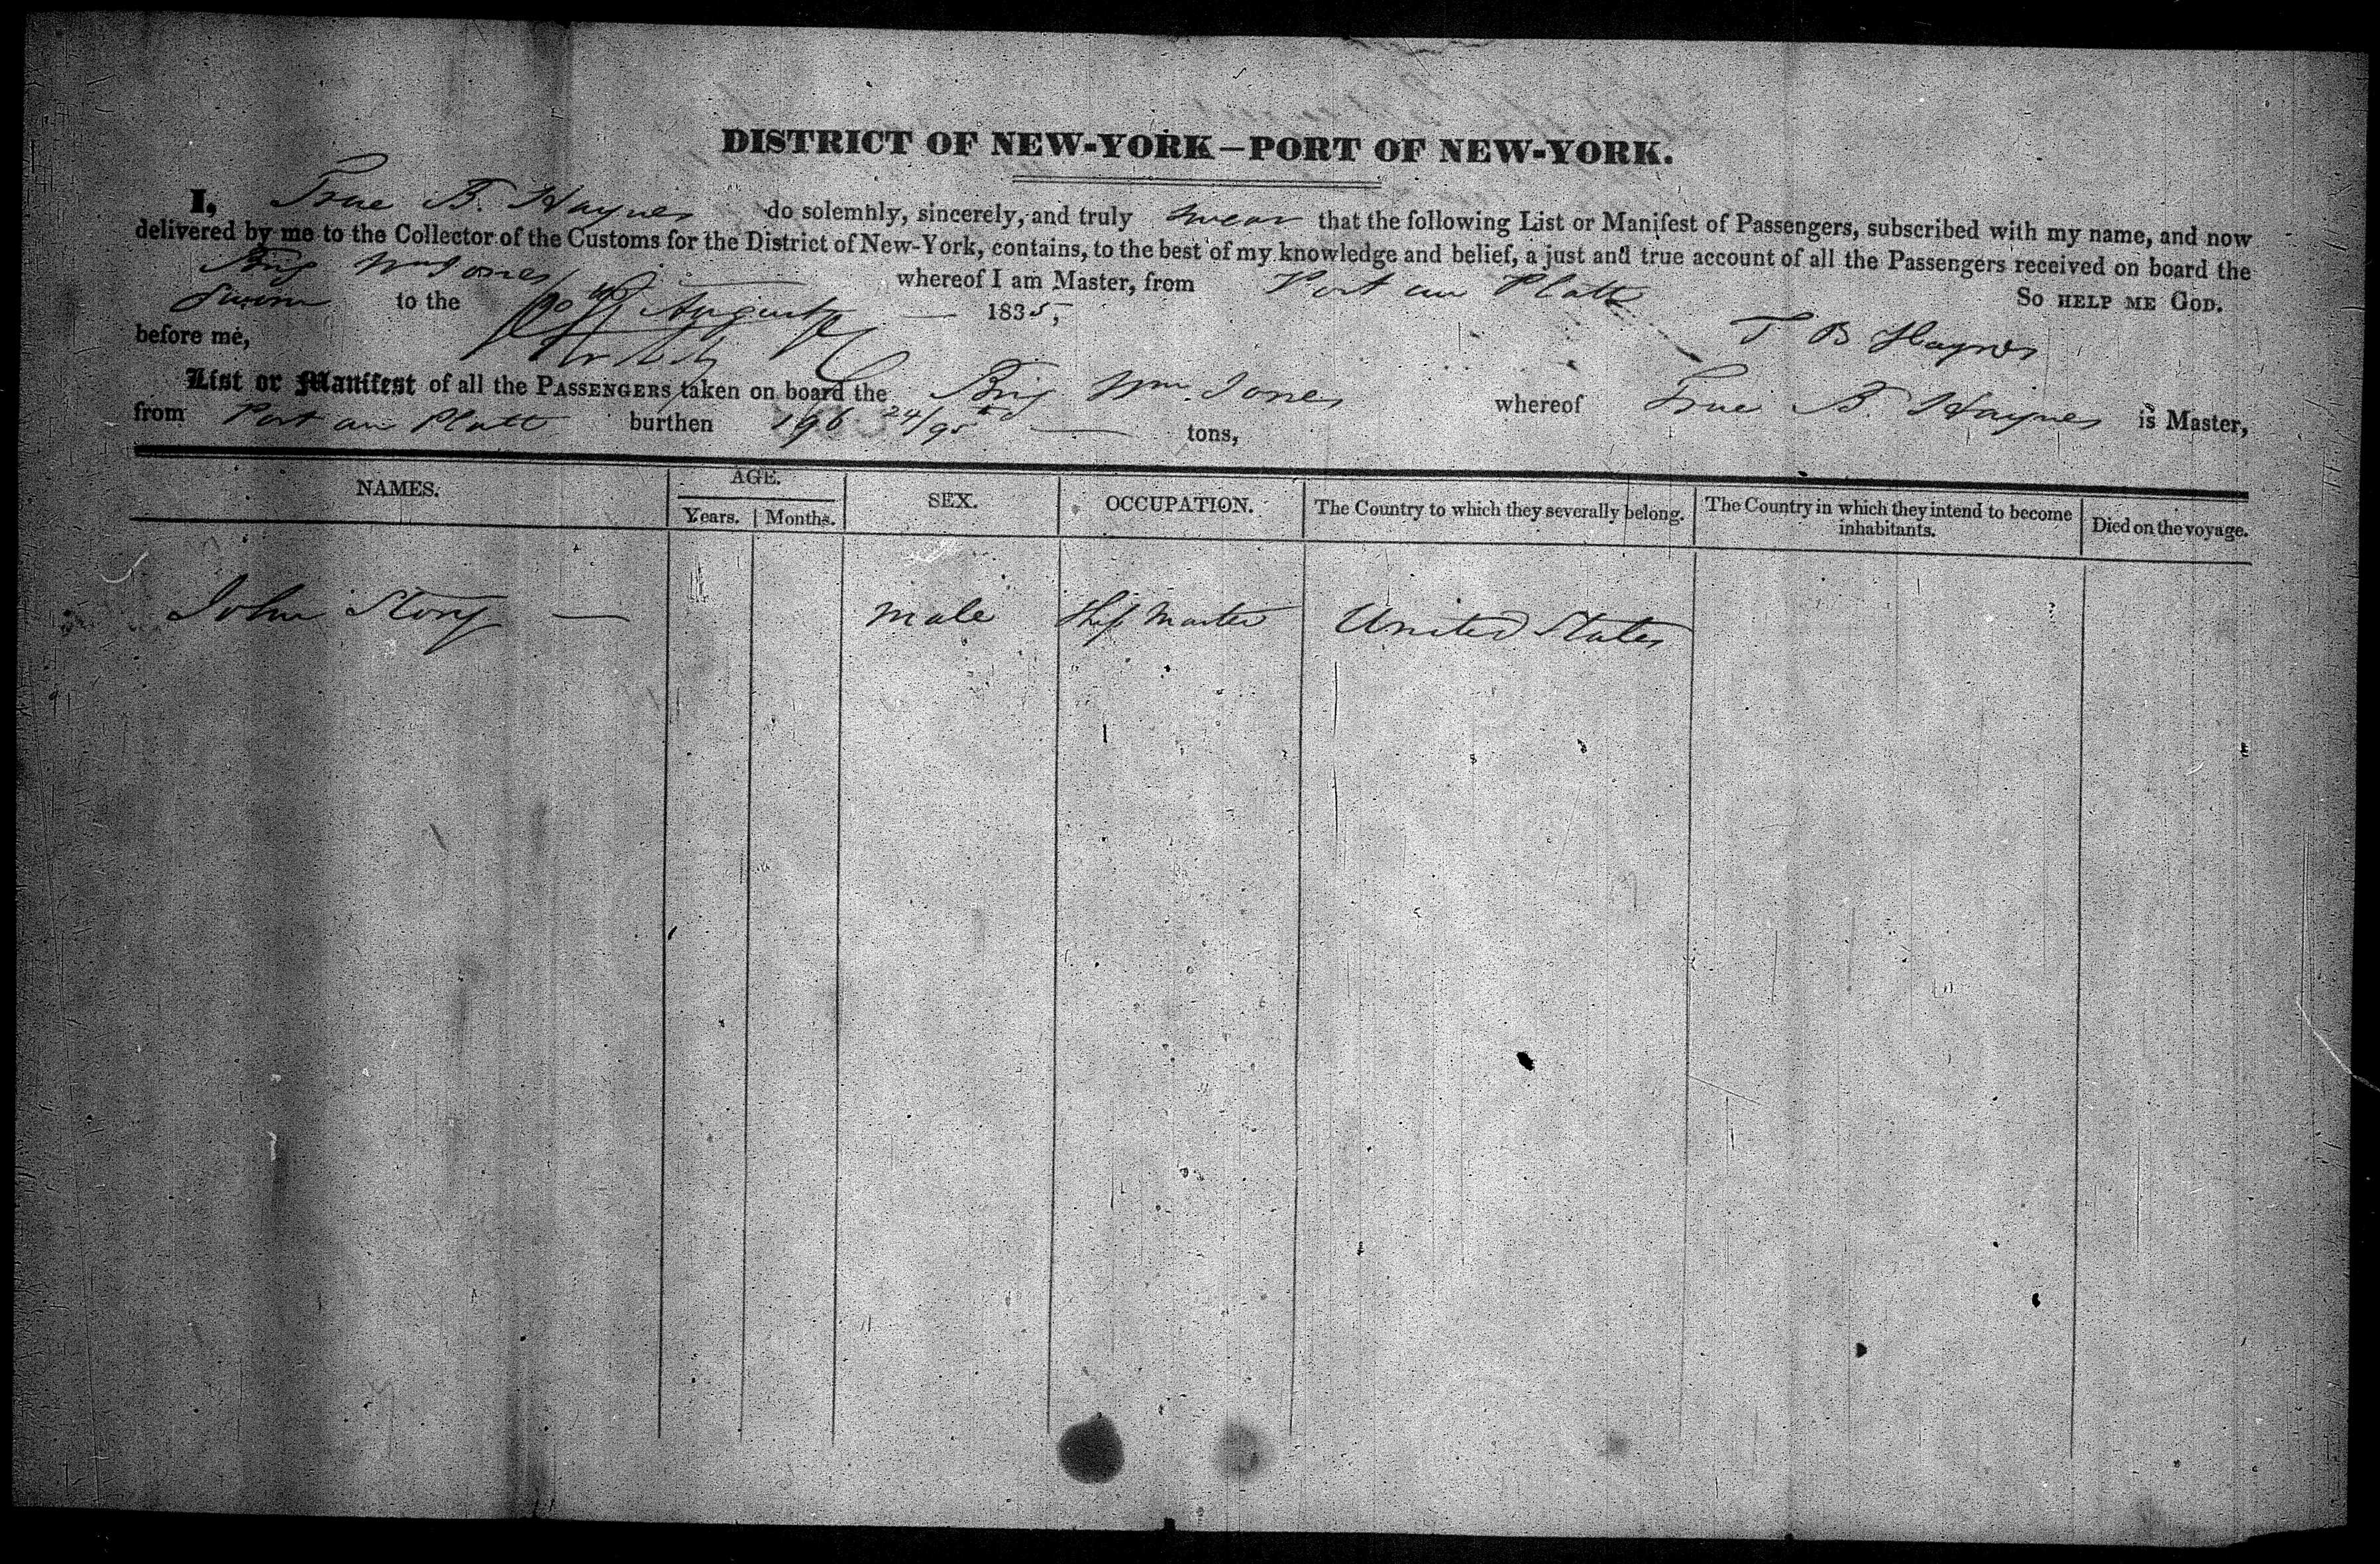 DISTRICT OF NEW-YORK—PORT OF NEW-YORK.
I, True B. Haynes do solemnly, sincerely, and truly swear that the following List or Manifest of Passengers, subscribed with my name, and now
delivered by me to the Collector of the Customs for the District of New-York, contains, to the best of my knowledge and belief, a just and true account of all the Passengers received on board the
Brig Wm Jones whereof I am Master, from Port au Platt
Sworn to the 20 August 1835, So HELP ME GOD.
before me, T B Haynes
List or Manifest of all the PASSENGERS taken on board the Brig Wm. Jones whereof True B. Haynes is Master,
from Port au Platt burthen 196 24/95 tons,
NAMES. AGE. SEX. OCCUPATION. The Country to which they severally belong. The Country in which they intend to become inhabitants. Died on the voyage.
Years. Months.
John Story — male Ship Master United States